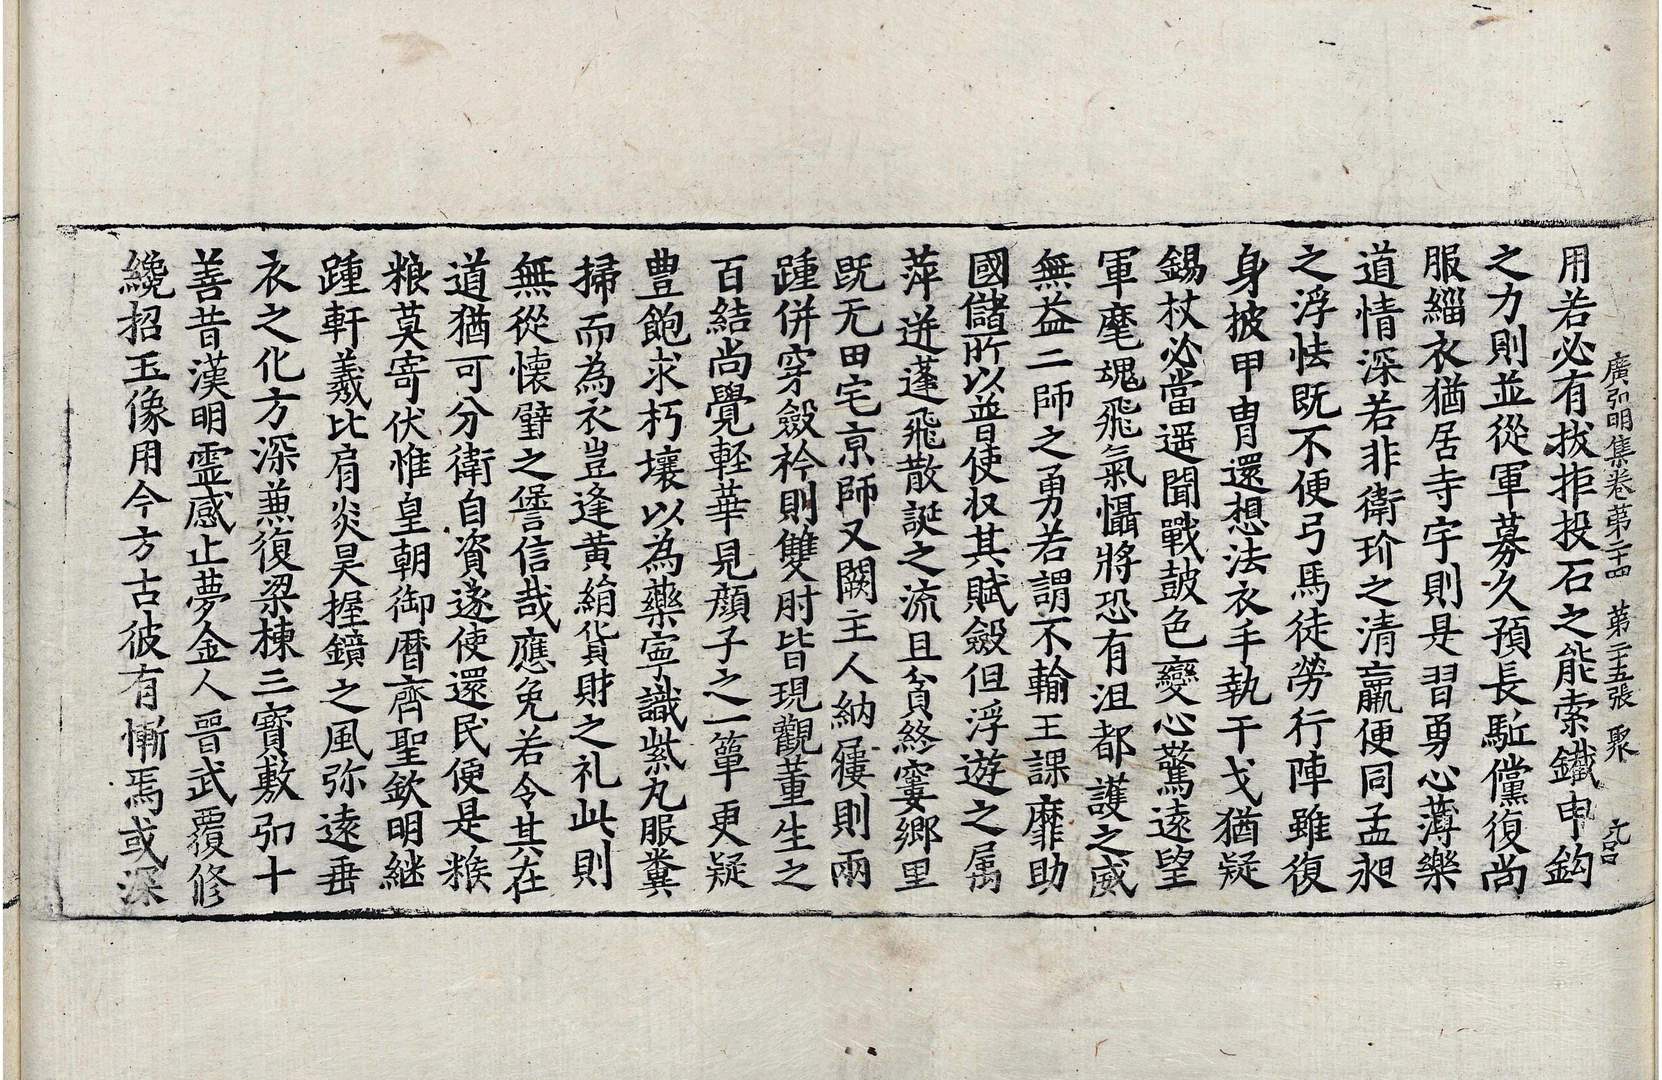 廣弘明集卷第二十四　第二十五張　聚
用若必有拔拒投石之能索鐵申鈎
之力則並從軍募久預長駈儻復尚
服緇衣猶居寺宇則是習勇心薄樂
道情深若非衛玠之清羸便同孟昶
之浮怯既不便弓馬徒勞行陣雖復
身披甲冑還想法衣手執干戈猶疑
錫杖必當遥聞戰鼓色變心驚遠望
軍麾魂飛氣懾將恐有沮都護之威
無益二師之勇若謂不輸王課靡助
國儲所以普使収其賦斂但浮遊之属
萍迸蓬飛散誕之流且貧終窶鄉里
既无田宅京師又闕主人納屨則兩
踵併穿斂衿則雙肘皆現觀董生之
百結尚覺軽華見顔子之一簞更疑
豊飽求朽壤以為藥寧識紫丸服糞
掃而為衣豈逢黄絹貨財之礼此則
無從懷璧之䛭信哉應免若令其在
道猶可分衛自資遂使還民便是糇
粮莫寄伏惟皇朝御曆齊聖欽明継
踵軒羲比肩炎昊握鏡之風弥遠垂
衣之化方深兼復梁棟三寳敷弘十
善昔漢明霊感止夢金人晉武覆修
纔招玉像用今方古彼有慚焉或深